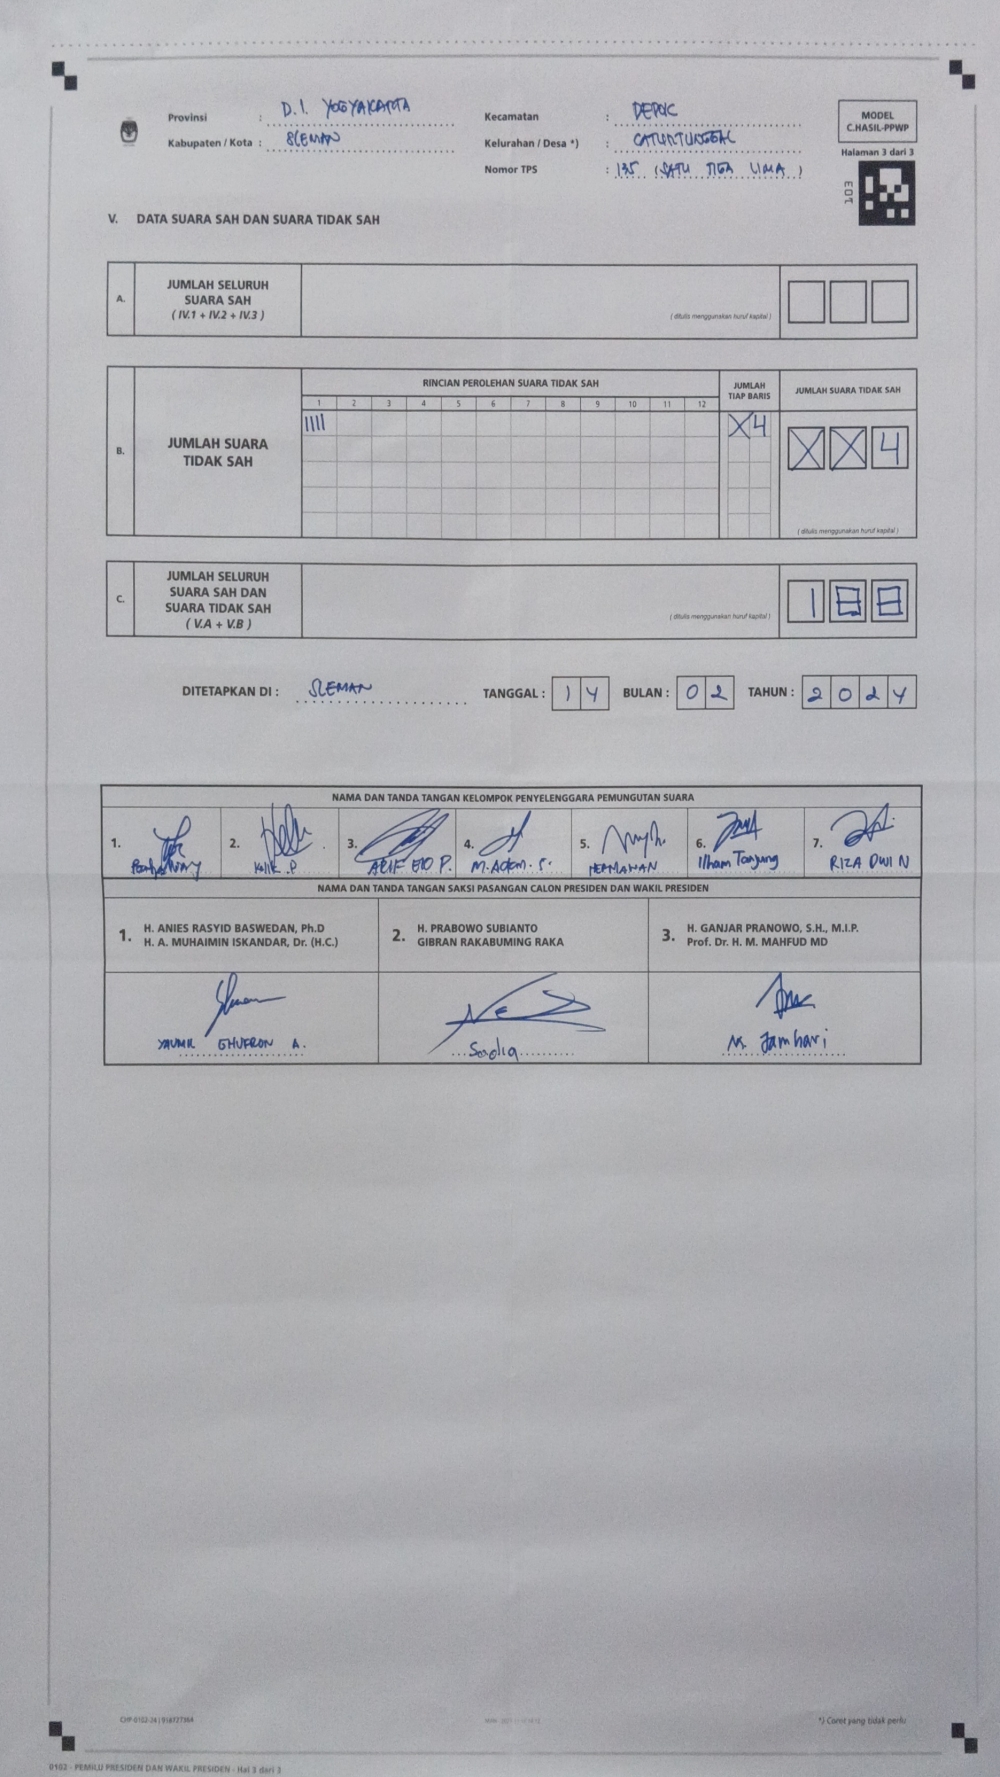 Provinsi : D.I. YOGYAKARTA
Kabupaten / Kota : SLEMAN
Kecamatan : DEPOK
Kelurahan / Desa *) : CATURTUNGGAL
Nomor TPS : 135 (SATU TIGA LIMA)
MODEL
C.HASIL-PPWP
Halaman 3 dari 3
103
V. DATA SUARA SAH DAN SUARA TIDAK SAH
A. JUMLAH SELURUH
SUARA SAH
( IV.1 + IV.2 + IV.3 )
( ditulis menggunakan huruf kapital )
B. JUMLAH SUARA
TIDAK SAH
RINCIAN PEROLEHAN SUARA TIDAK SAH
1 2 3 4 5 6 7 8 9 10 11 12
IIII
JUMLAH
TIAP BARIS
X4
JUMLAH SUARA TIDAK SAH
X X 4
( ditulis menggunakan huruf kapital )
C. JUMLAH SELURUH
SUARA SAH DAN
SUARA TIDAK SAH
( V.A + V.B )
( ditulis menggunakan huruf kapital )
1 8 8
DITETAPKAN DI : SLEMAN TANGGAL : 14 BULAN : 02 TAHUN : 2024
NAMA DAN TANDA TANGAN KELOMPOK PENYELENGGARA PEMUNGUTAN SUARA
1. 2. 3. 4. 5. 6. 7.
Kelik .P ARIF EKO P. HERMAWAN Ilham Tanjung RIZA DWI N
NAMA DAN TANDA TANGAN SAKSI PASANGAN CALON PRESIDEN DAN WAKIL PRESIDEN
1. H. ANIES RASYID BASWEDAN, Ph.D
H. A. MUHAIMIN ISKANDAR, Dr. (H.C.)
2. H. PRABOWO SUBIANTO
GIBRAN RAKABUMING RAKA
3. H. GANJAR PRANOWO, S.H., M.I.P.
Prof. Dr. H. M. MAHFUD MD
YAUMIL GHUFRON A.
Sadiq
M. Jamhari
*) Coret yang tidak perlu
0102 - PEMILU PRESIDEN DAN WAKIL PRESIDEN - Hal 3 dari 3